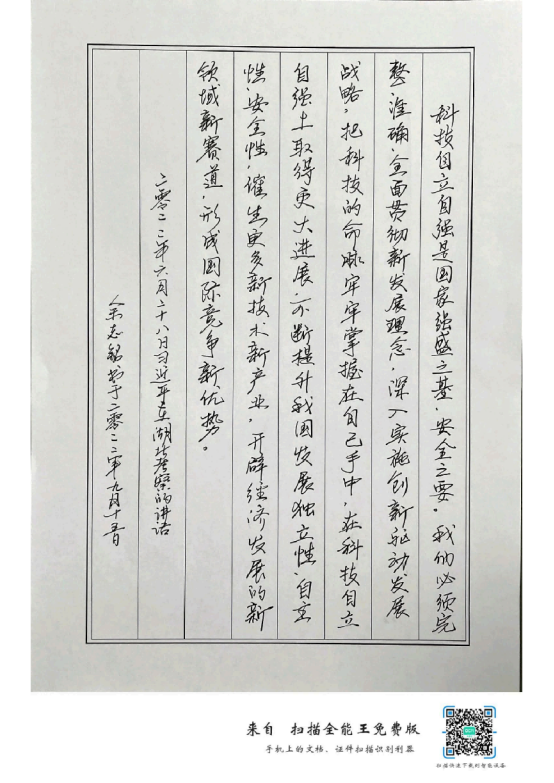 科技自立自强是国家强盛之基、安全之要。我们必须完
整、准确、全面贯彻新发展理念，深入实施创新驱动发展
战略，把科技的命脉牢牢掌握在自己手中，在科技自立
自强上取得更大进展，不断提升我国发展独立性、自主
性、安全性，催生更多新技术新产业，开辟经济发展的新
领域新赛道，形成国际竞争新优势。
二零二二年六月二十八日习近平在湖北考察的讲话
余志铭书于二零二二年九月十五日
来自 扫描全能王免费版
手机上的文档、证件扫描识别利器
扫描快速下载到智能设备